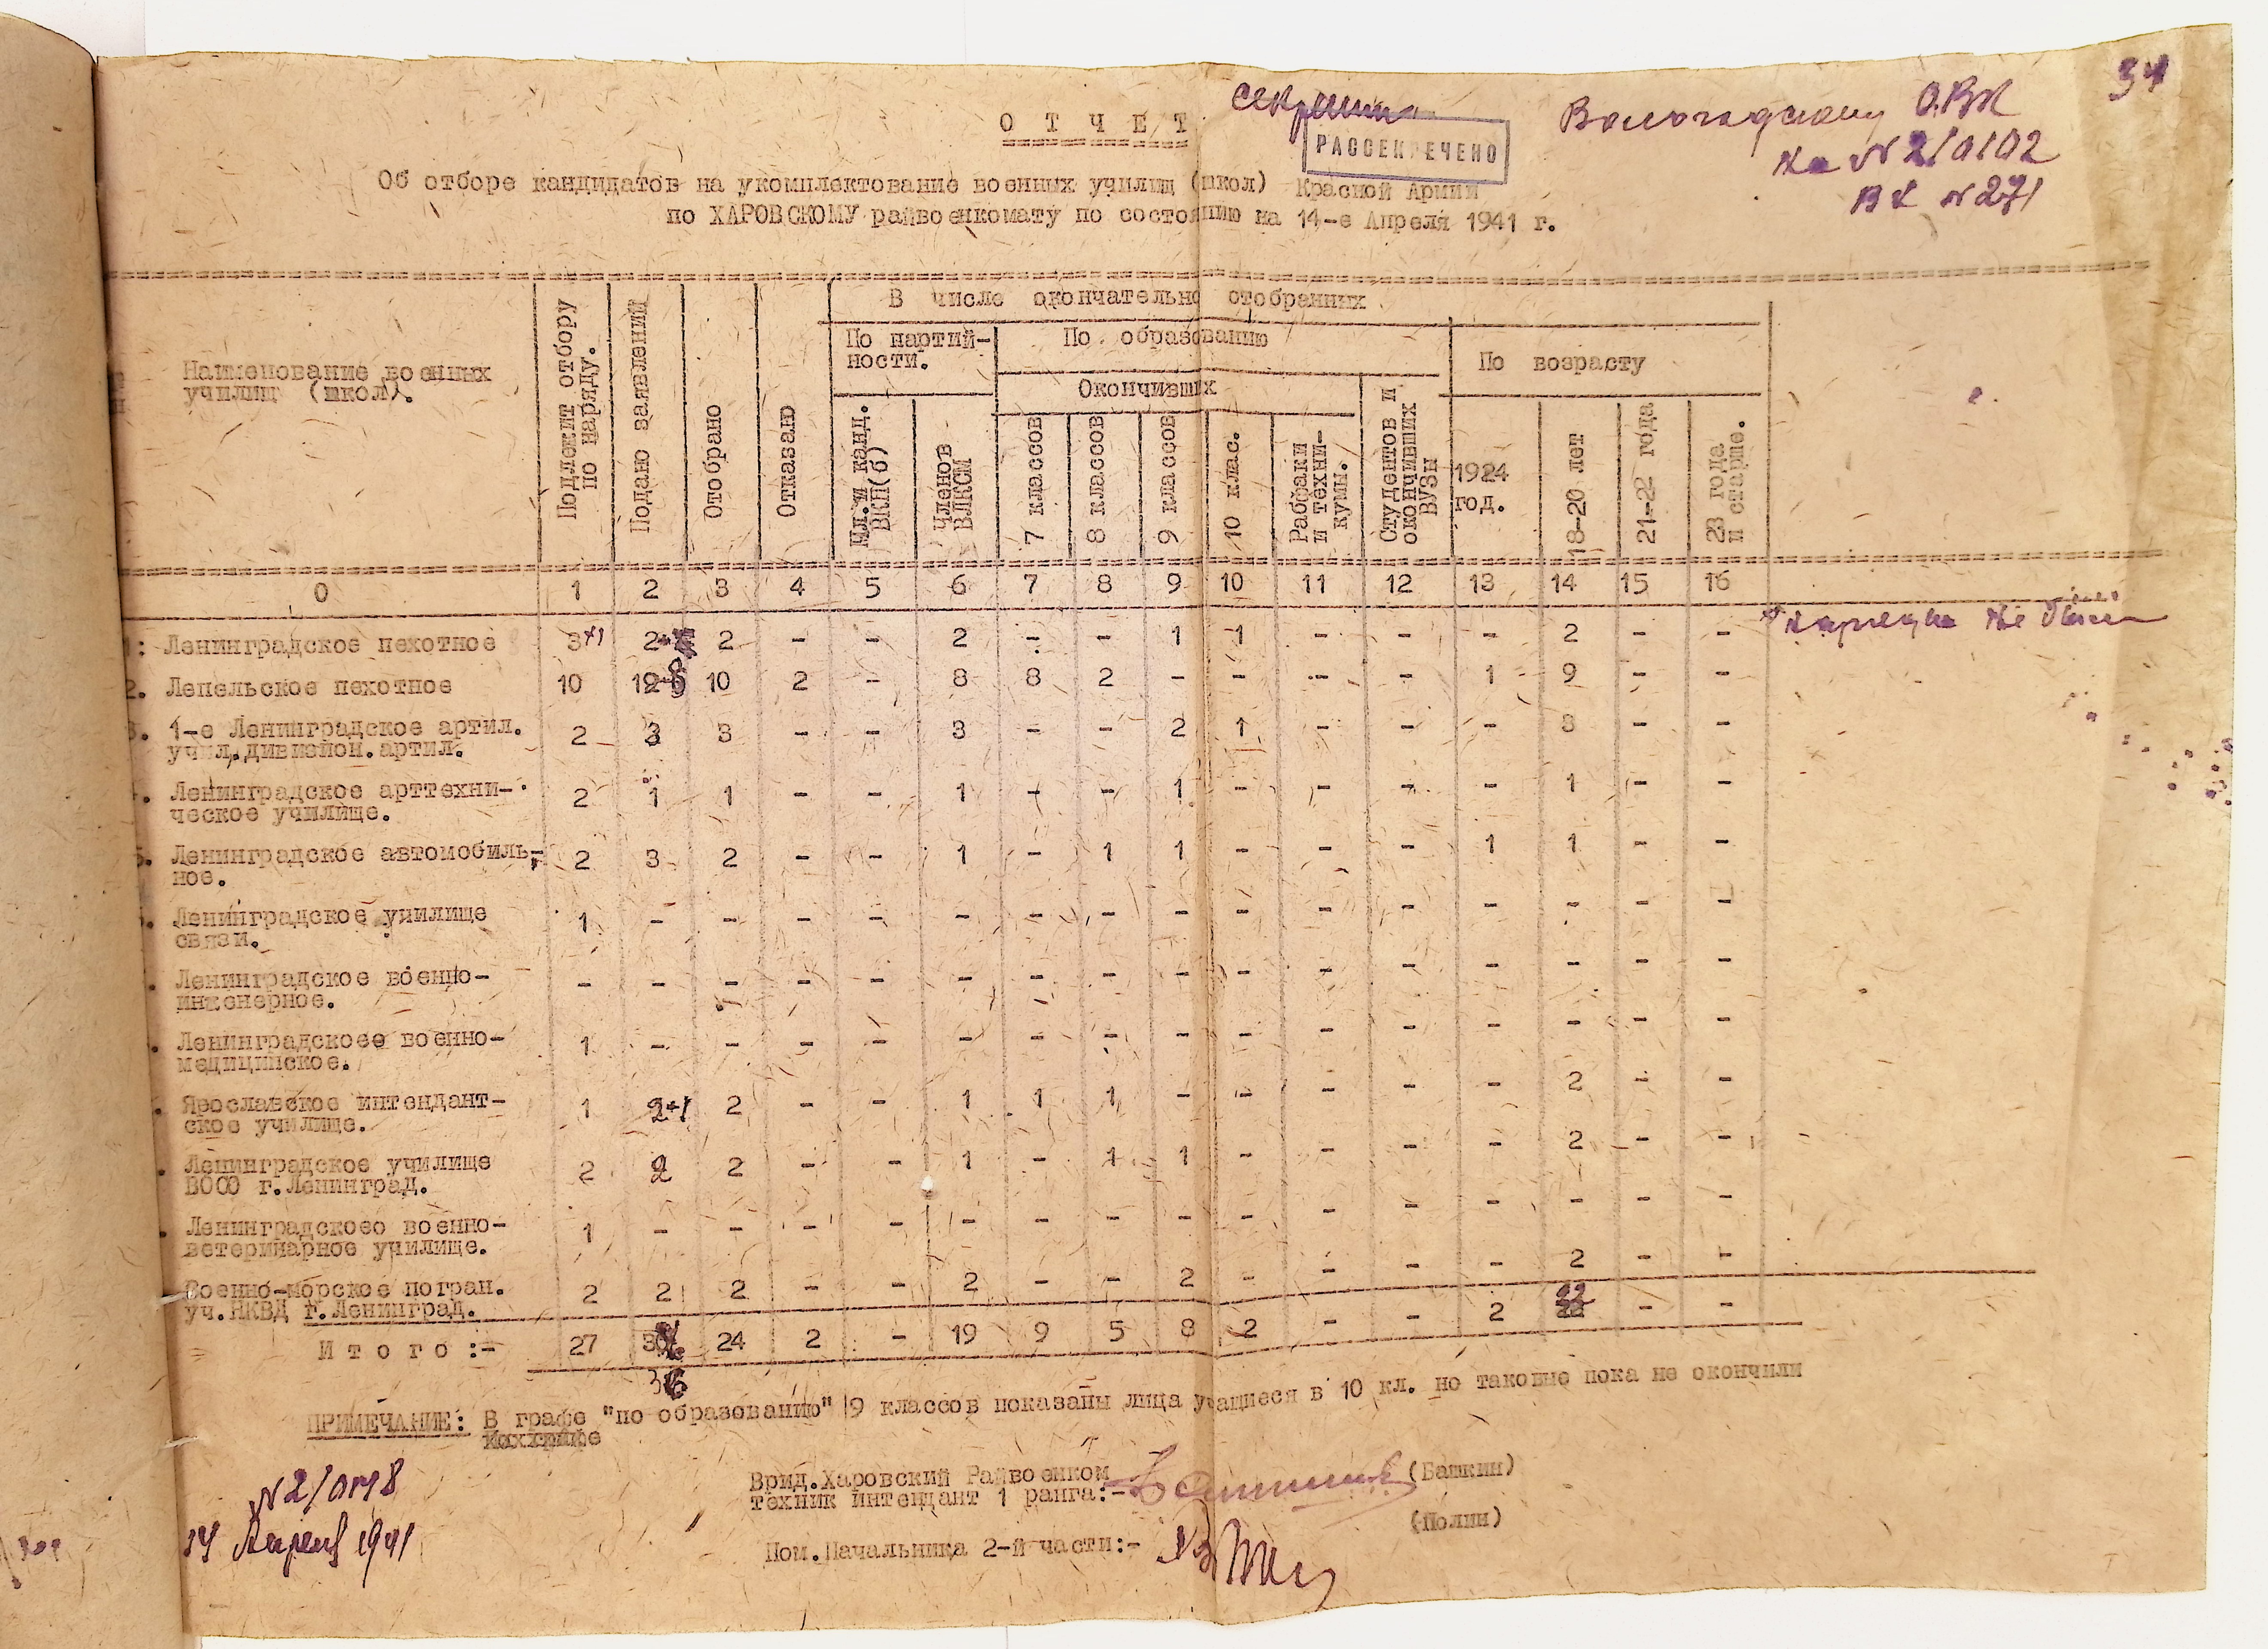 34
секретно
Вологодскому ОВК
На № 2/0102
ВХ № 271
О Т Ч Е Т
РАССЕКРЕЧЕНО
Об отборе кандидатов на укомплектование военных училищ (школ) Красной Армии
по ХАРОВСКОМУ райвоенкомату по состоянию на 14-е Апреля 1941 г.
Наименование военных
училищ (школ).
Подлежит отбору
по наряду.
Подано заявлений
Отобрано
Отказано
В числе окончательно отобранных
По партий-
ности.
Чл.и канд.
ВКП(б)
Членов
ВЛКСМ
По образованию
Окончивших
7 классов
8 классов
9 классов
10 клас.
Рабфаки
и техни-
кумы.
Студентов и
окончивших
ВУЗы
По возрасту
1924
год.
18-20 лет
21-22 года
23 года
и старше.
0 1 2 3 4 5 6 7 8 9 10 11 12 13 14 15 16
1: Ленинградское пехотное 3 х) 2 2 - - 2 - - 1 1 - - - 2 - - наряда не было
2. Лепельское пехотное 10 12 10 2 - 8 8 2 - - - - 1 9 - -
3. 1-е Ленинградское артил. 2 3 3 - - 3 - - 2 1 - - - 3 - -
учил,.дивизион.артил.
. Ленинградское арттехни- 2 1 1 - - 1 - - 1 - - - - 1 - -
ческое училище.
5. Ленинградское автомобиль- 2 3 2 - - 1 - 1 1 - - - 1 1 - -
ное.
. Ленинградское училище 1 - - - - - - - - - - - - - - -
связи.
. Ленинградское военно- - - - - - - - - - - - - - - - -
инженерное.
. Ленинградскоее военно- 1 - - - - - - - - - - - - - - -
медицинское.
. Ярославское интендант- 1 2+1 2 - - 1 1 1 - - - - - 2 - -
ское училище.
. Ленинградское училище 2 2 2 - - 1 - 1 1 - - - - 2 - -
ВОСО г.Ленинград.
. Ленинградскоео военно- 1 - - - - - - - - - - - - - - -
ветеринарное училище.
Военно-морское погран. 2 2 2 - - 2 - - 2 - - - - 2 - -
уч.НКВД г.Ленинград.
И т о г о :- 27 30 24 2 - 19 9 5 8 2 - - 2 22 - -
36
ПРИМЕЧАНИЕ: В графе "по образованию" 9 классов показаны лица учащиеся в 10 кл. но таковые пока не окончили
№ 2/0148
14 Апреля 1941
Врид.Харовский Райвоенком
техник интендант 1 ранга:- (Башкин)
Пом.Начальника 2-й части:- (Полин)